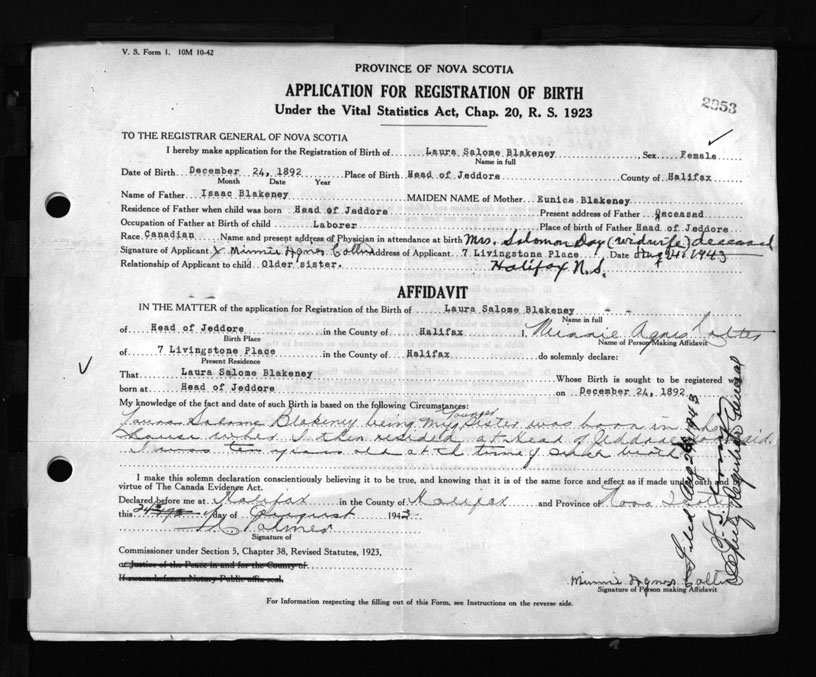 V. S. Form 1. 10M 10-42
PROVINCE OF NOVA SCOTIA
APPLICATION FOR REGISTRATION OF BIRTH
2953
Under the Vital Statistics Act, Chap. 20, R. S. 1923
TO THE REGISTRAR GENERAL OF NOVA SCOTIA
I hereby make application for the Registration of Birth of Laura Salome Blakeney, Sex Female
Name in full
Date of Birth December 24, 1892 Place of Birth Head of Jeddore County of Halifax
Month Date Year
Name of Father Isaac Blakeney MAIDEN NAME of Mother Eunice Blakeney
Residence of Father when child was born Head of Jeddore Present address of Father deceased
Occupation of Father at Birth of child Laborer Place of birth of Father Head of Jeddore
Race Canadian Name and present address of Physician in attendance at birth Mrs. Solomon Day (midwife) deceased
Signature of Applicant X Minnie Agnes Address of Applicant 7 Livingstone Place Date Aug 1943
Halifax N.S.
Relationship of Applicant to child Older sister.
AFFIDAVIT
IN THE MATTER of the application for Registration of the Birth of Laura Salome Blakeney - -
Name in full
of Head of Jeddore in the County of Halifax I, Minnie Agnes
Birth Place Name of Person Making Affidavit
of 7 Livingstone Place in the County of Halifax do solemnly declare:
Present Residence
That Laura Salome Blakeney Whose Birth is sought to be registered was
born at Head of Jeddore on December 24, 1892
My knowledge of the fact and date of such Birth is based on the following Circumstances:
Laura Salome Blakeney being my younger sister was born in the
house where I then resided at Head of Jeddore
I was ten years old at the time of such birth
I make this solemn declaration conscientiously believing it to be true, and knowing that it is of the same force and effect as if made under oath and
virtue of The Canada Evidence Act.
Declared before me at Halifax in the County of Halifax and Province of Nova Scotia
this day of August 1943
Signature of
Commissioner under Section 5, Chapter 38, Revised Statutes, 1923,
or Justice of the Peace in and for the County of
If sworn before a Notary Public affix seal.
Minnie Agnes
Signature of Person making Affidavit
For Information respecting the filling out of this Form, see Instructions on the reverse side.
Filed Aug 1943
Deputy Registrar General